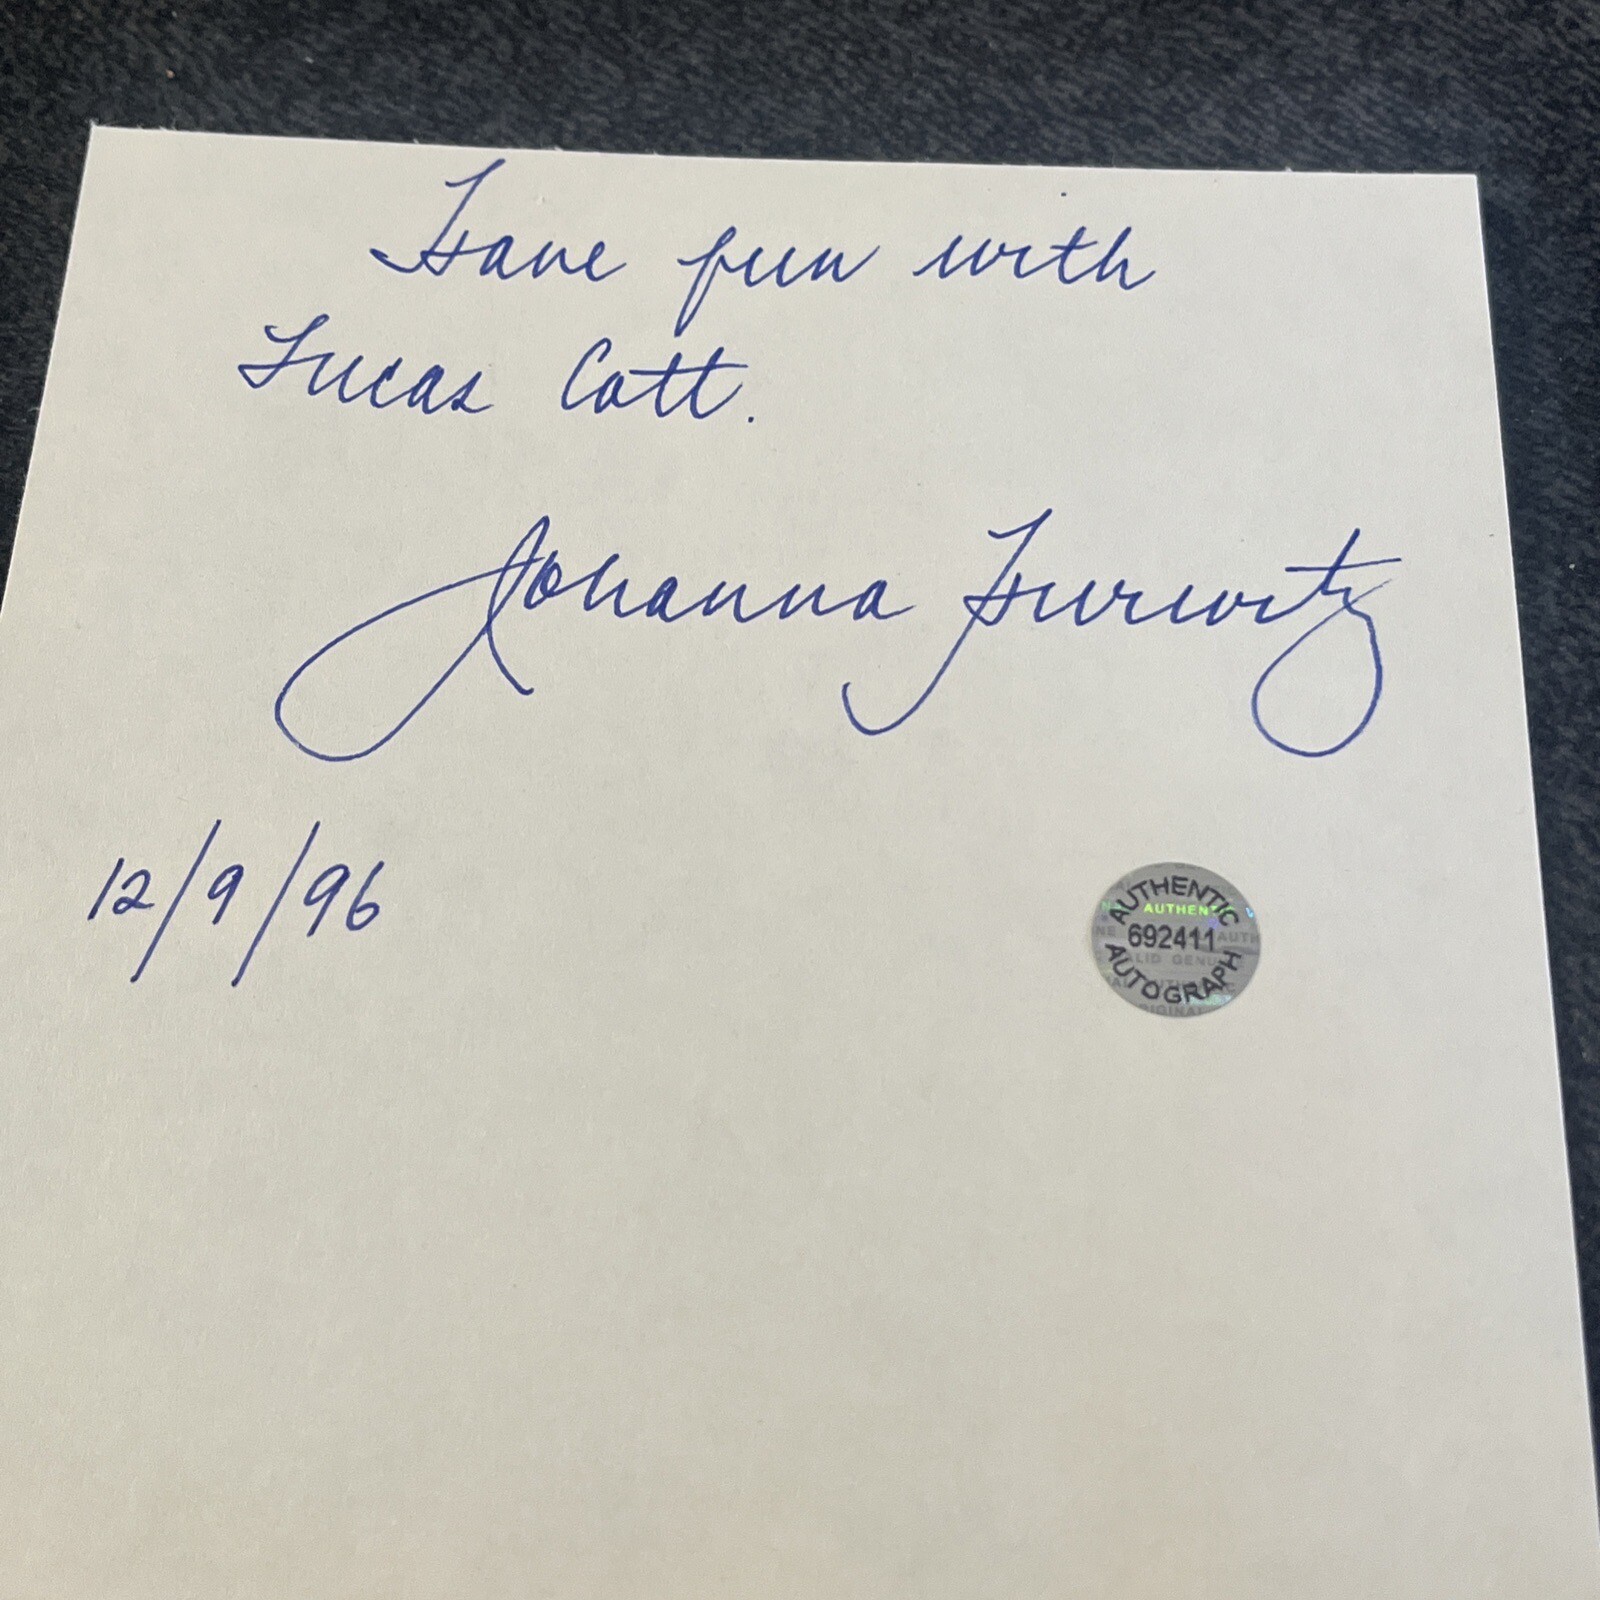 Have fun with
Lucas Cott.
Johanna Hurwitz
12/9/96
AUTHENTIC
AUTHENT
692411
AUTOGRAPH